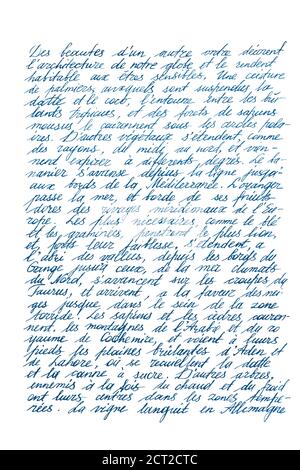 Des beautés d'un autre ordre décorent
l'architecture de notre globe et le rendent
habitable aux êtres sensibles. Une ceinture
de palmiers, auxquels sont suspendus la
datte et le coco, l'entoure entre les brû-
lants tropiques, et des forêts de sapins
mousseux le couronnent sous les cercles polai-
res. D'autres végétaux s'étendent comme
des rayons, du midi au nord, et vien-
nent expirer à différents degrés. Le ba-
nanier s'avance depuis la ligne jusqu'
aux bords de la Méditerranée. L'oranger
passe la mer, et borde de ses fruits
dorés des rivages méridionaux de l'Eu-
rope. Les plus nécessaires, comme le blé
et les graminées, pénètrent le plus loin,
et, forts leur faiblesse, s'étendent, à
l'abri des vallées, depuis les bords du
Gange jusqu'à ceux de la mer
du Nord, s'avancent sur les croupes du
Taurus, et arrivent, à la faveur des nei-
ges jusque dans le sein de la zone
torride. Les sapins et les cèdres couron-
nent les montagnes de l'Arabie et du ro-
yaume de Cachemire, et voient à leurs
pieds les plaines brûlantes d'Aden et
de Lahore, où se recueillent la datte
et la canne à sucre. D'autres arbres,
ennemis à la fois du chaud et du froid
ont leurs centres dans les zones tempé-
rées. La vigne languit en Allemagne
alamy
Image ID: 2CT2CTC
www.alamy.com